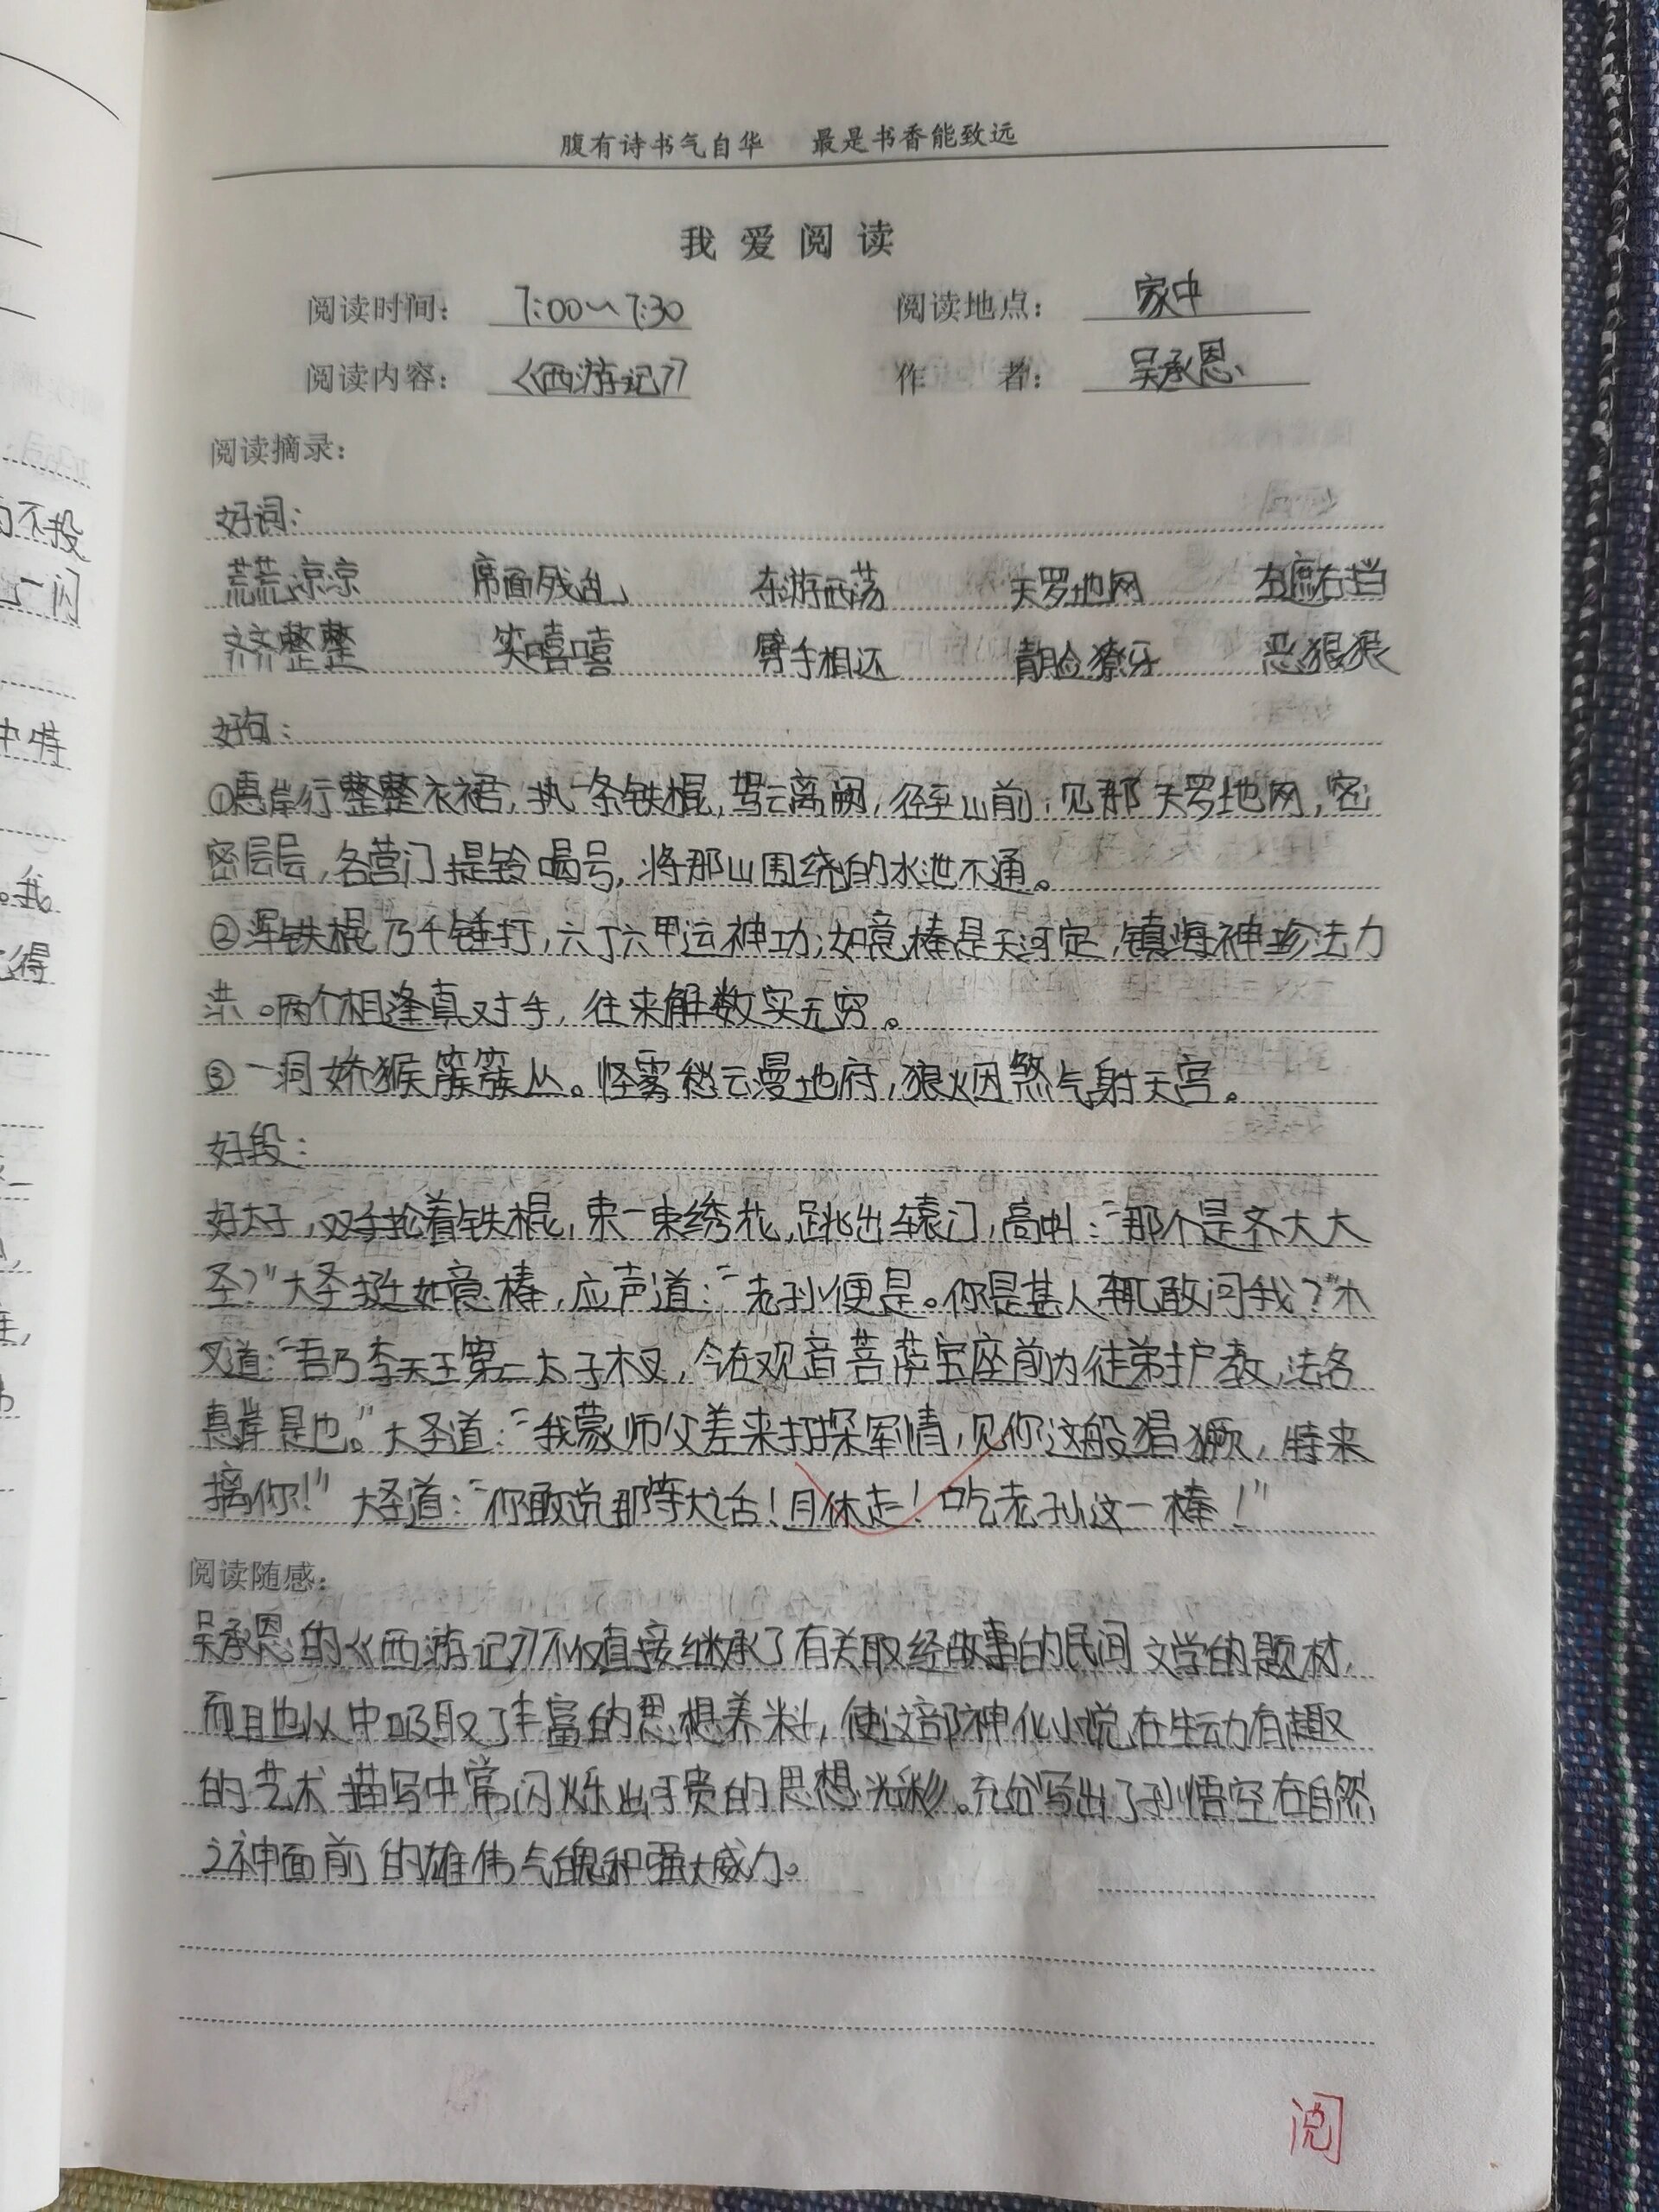 腹有诗书气自华 最是书香能致远
我爱阅读
阅读时间： 7:00～7:30 阅读地点： 家中
阅读内容： 《西游记》 作 者： 吴承恩
阅读摘录：
好词：
荒荒凉凉 席面残乱 东游西荡 天罗地网 左遮右挡
齐齐整整 笑嘻嘻 劈手相还 青脸獠牙 恶狠狠
好句：
①惠岸行整整衣裙，执一条铁棍，驾云离阙，径至山前，见那天罗地网，密
密层层，各营门提铃喝号，将那山围绕的水泄不通。
②浑铁棍乃千锤打，六丁六甲运神功；如意棒是天河定，镇海神珍法力
洪。两个相逢真对手，往来解数实无穷。
③一洞娇猴簇簇丛。怪雾愁云漫地府，狼烟煞气射天宫。
好段：
好太子，双手抡着铁棍，束一束绣花，跳出辕门，高叫：“那个是齐大大
圣？”大圣挺如意棒，应声道：“老孙便是。你是甚人，辄敢问我？”木
叉道：“吾乃李天王第二太子木叉，今在观音菩萨宝座前为徒弟护教，法名
惠岸是也。”大圣道：“我蒙师父差来打探军情，见你这般猖獗，特来
擒你！”大圣道：“你敢说那等大话！月休走！吃老孙这一棒！”
阅读随感：
吴承恩的《西游记》不仅直接继承了有关取经故事的民间文学的题材，
而且也从中吸取了丰富的思想养料，使这部神化小说在生动有趣
的艺术描写中常闪烁出可贵的思想光彩。充分写出了孙悟空在自然
之神面前的雄伟气魄和强大威力。
阅